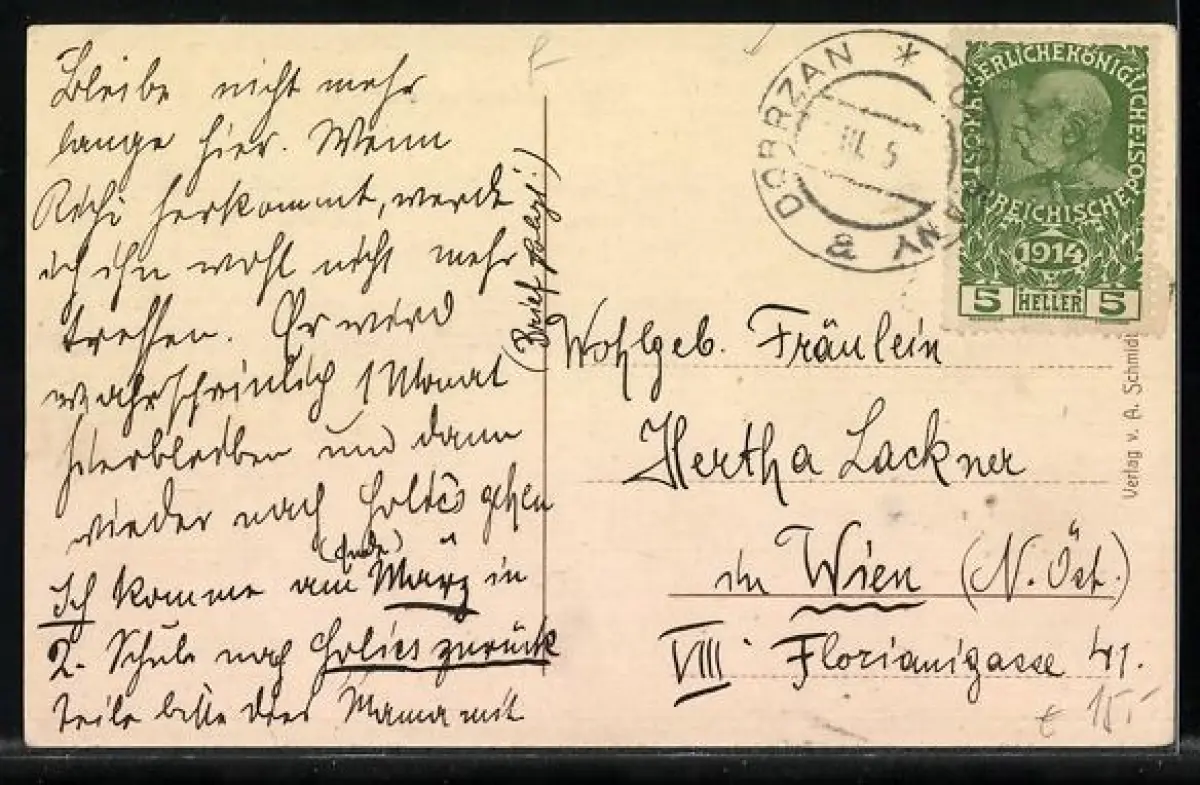 Bleibe nicht mehr
lange hier. Wenn
Richi herkommt, werde
ich ihn wohl nicht mehr
treffen. Er wird
wahrscheinlich 1 Monat
hierbleiben und dann
wieder nach Holics gehen
(Ende)
Ich komme am März in
2. Schule nach Holics zurück
Teile bitte dies Mama mit
(Brief folgt!)
DOBRZAN * &
III. 5
KAISERLICHE KÖNIGLICHE
ÖSTERREICHISCHE POST
1914
5 HELLER 5
Wohlgeb. Fräulein
Hertha Lackner
in Wien (N. Öst.)
VIII Florianigasse 41.
Verlag v. A. Schmidt
€ 15.-